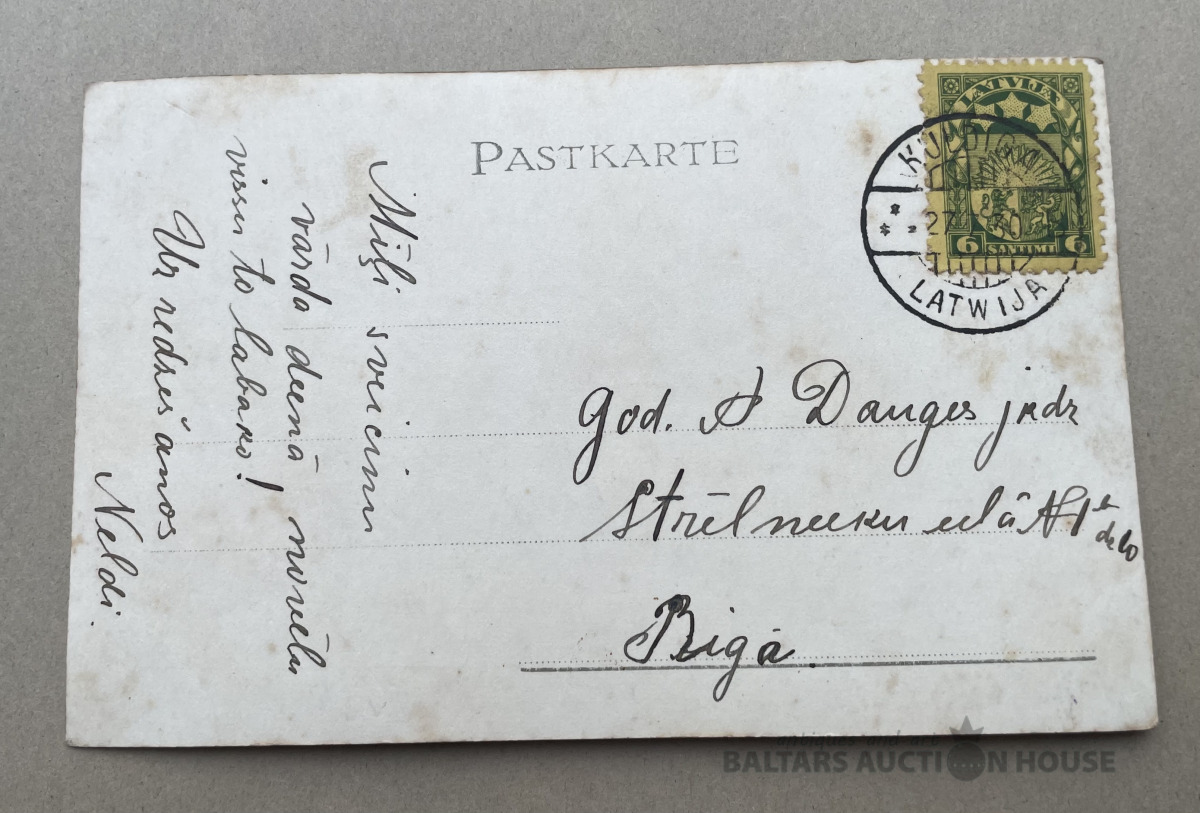 PASTKARTE
LATVIJA
6 SANTIMI 6
KULDIGA
27 30
LATWIJA
Mīļi sveicinu
vārda deenā novēlu
vissu to labako!
Uz redzēšanos
Neldi.
God. A Danges jkdz
Strēlneeku eelā № 1
dz 10
Rigā.
antiques and art
BALTARS AUCTION HOUSE